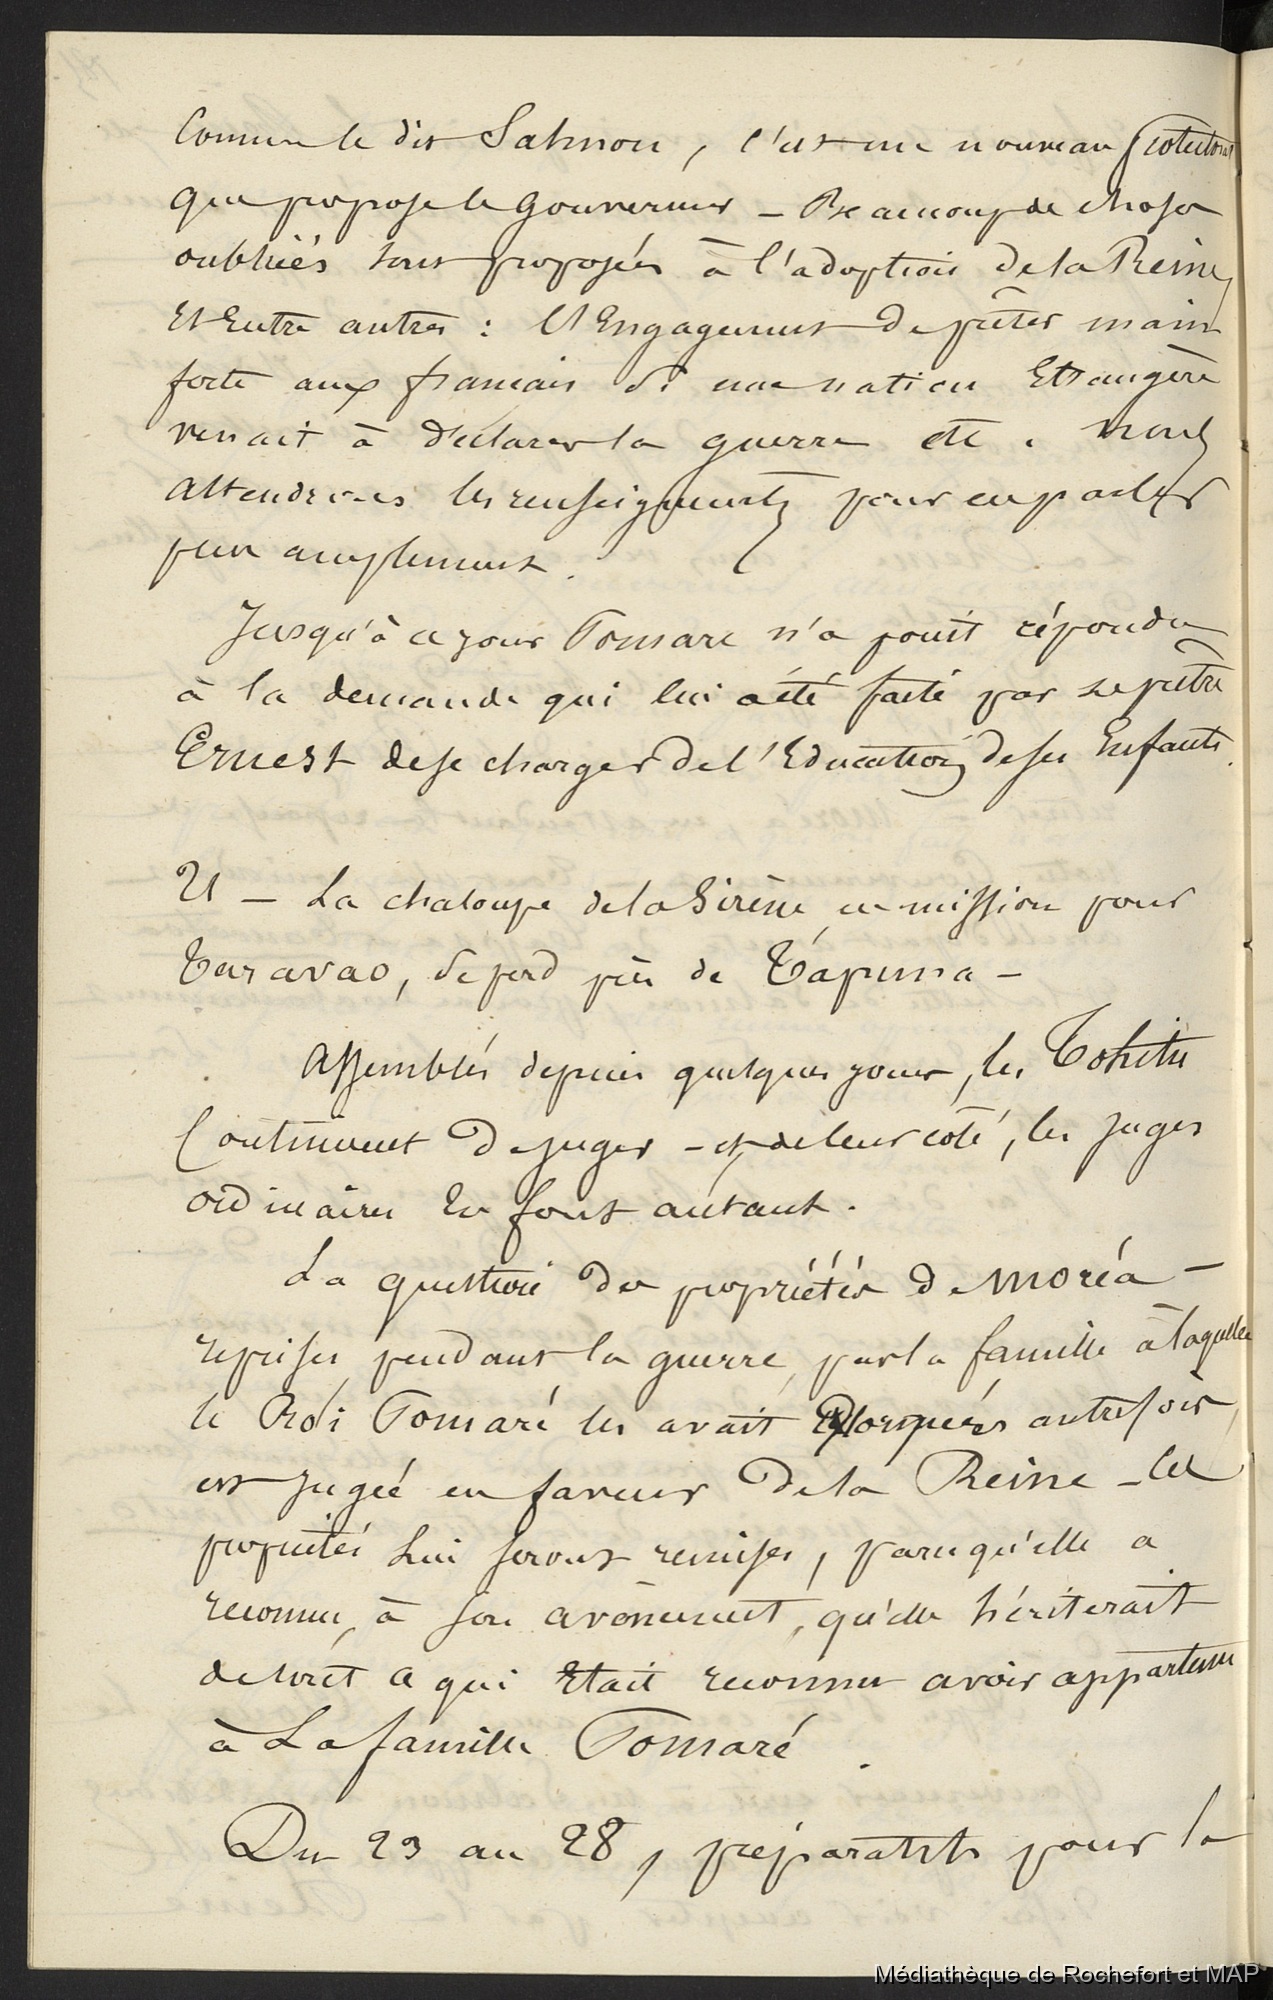 Comme le dit Salmon, c'est un nouveau protectorat
que propose le Gouverneur – Beaucoup de choses
oubliées sont proposées à l'adoption de la Reine,
Et Entre autres : l'Engagement de prêter main
forte aux français si une nation Etrangère
venait à déclarer la guerre etc. Nous
attendrons les renseignements pour en parler
plus amplement.
Jusqu'à ce jour Pomare n'a point répondu
à la demande qui lui a été faite par le prêtre
Ernest de se charger de l'Education de ses Enfants.
21 – La chaloupe de la Sirène en mission pour
Taravao, se perd près de Tapuna –
Assemblés depuis quelques jours, les Tohitu
Continuent de juger – et de leur coté, les juges
ordinaires En font autant.
La question des propriétés de Moréa –
reprises, pendant la guerre, par la famille à laquelle
le Roi Pomaré les avait autrefois,
est jugée en faveur de la Reine – les
propriétés lui seront remises, parcequ'elle a
reconnu, à son avènement, qu'elle hériterait
de tout ce qui Etait reconnu avoir appartenu
à La famille Pomaré.
Du 23 au 28, préparatifs pour la
Médiathèque de Rochefort et MAP